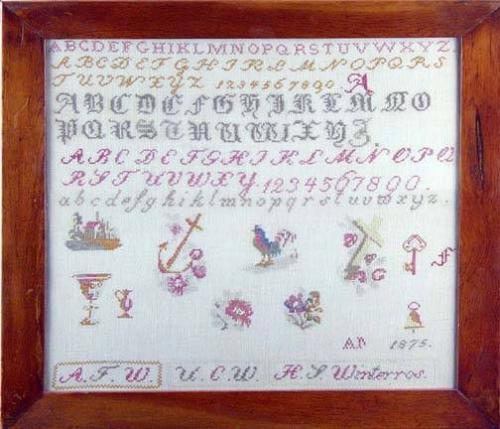 ABCDEFGHIKLMNOPQRSTUVWXYZ.
ABCDEFGHIKLMNOPQRS
TUVWXYZ 1234567890. A
ABCDEFGHIKLMNO
PQRSTUVWXYZ.
ABCDEFGHIKLMNOPQ
RSTUVWXY 1234567890.
abcdefghiklmnopqrstuvwxyz.
F
AD 1875.
A.F.W. U.C.W. H.S. Winterros.